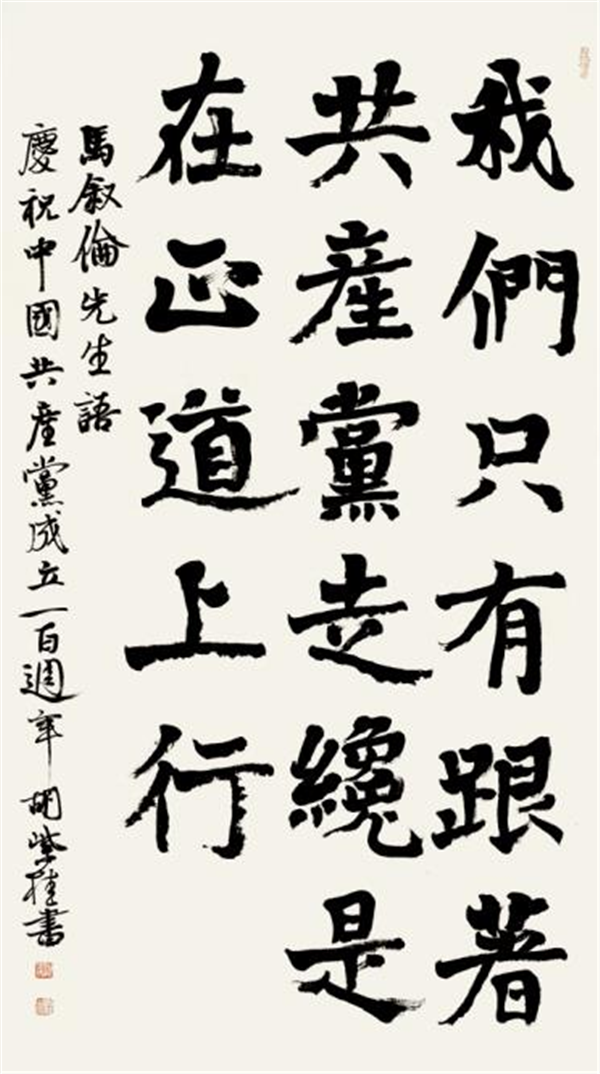 我們只有跟著
共產黨走纔是
在正道上行
馬叙倫先生語
慶祝中國共產黨成立一百週年 胡紫桂書